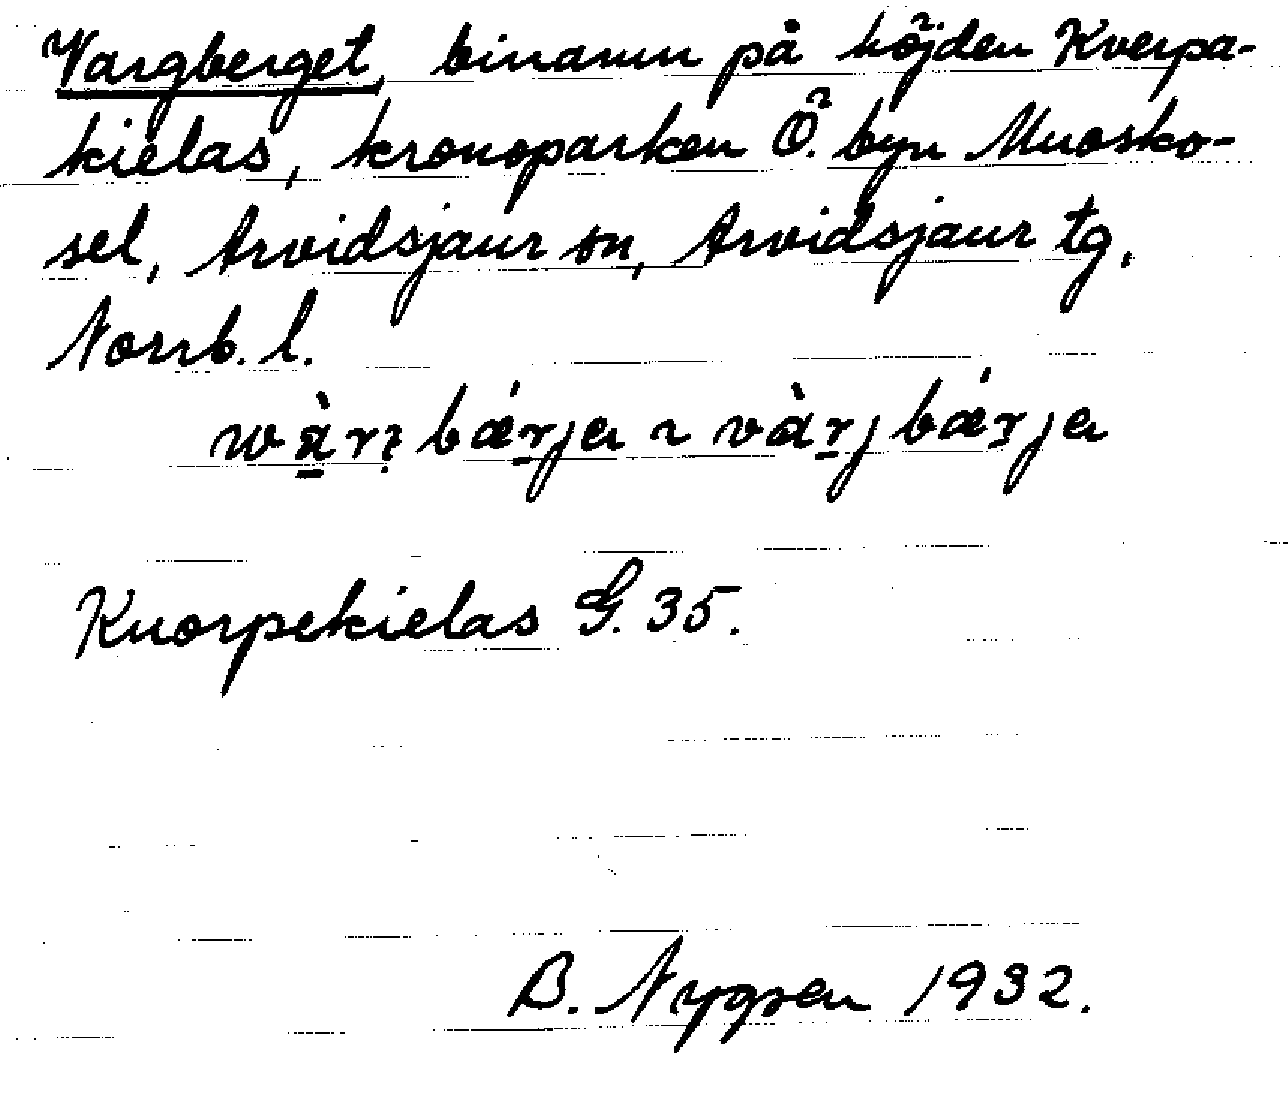 Vargberget, binamn på höjden Kverpa-
kielas, kronoparken Ö. byn Muosko-
sel, Arvidsjaur sn, Arvidsjaur tg,
Norrb. l.
wàrı̣bǽrja ~ vàrjbǽrja
Kuorpekielas G. 35.
B. Nygren 1932.